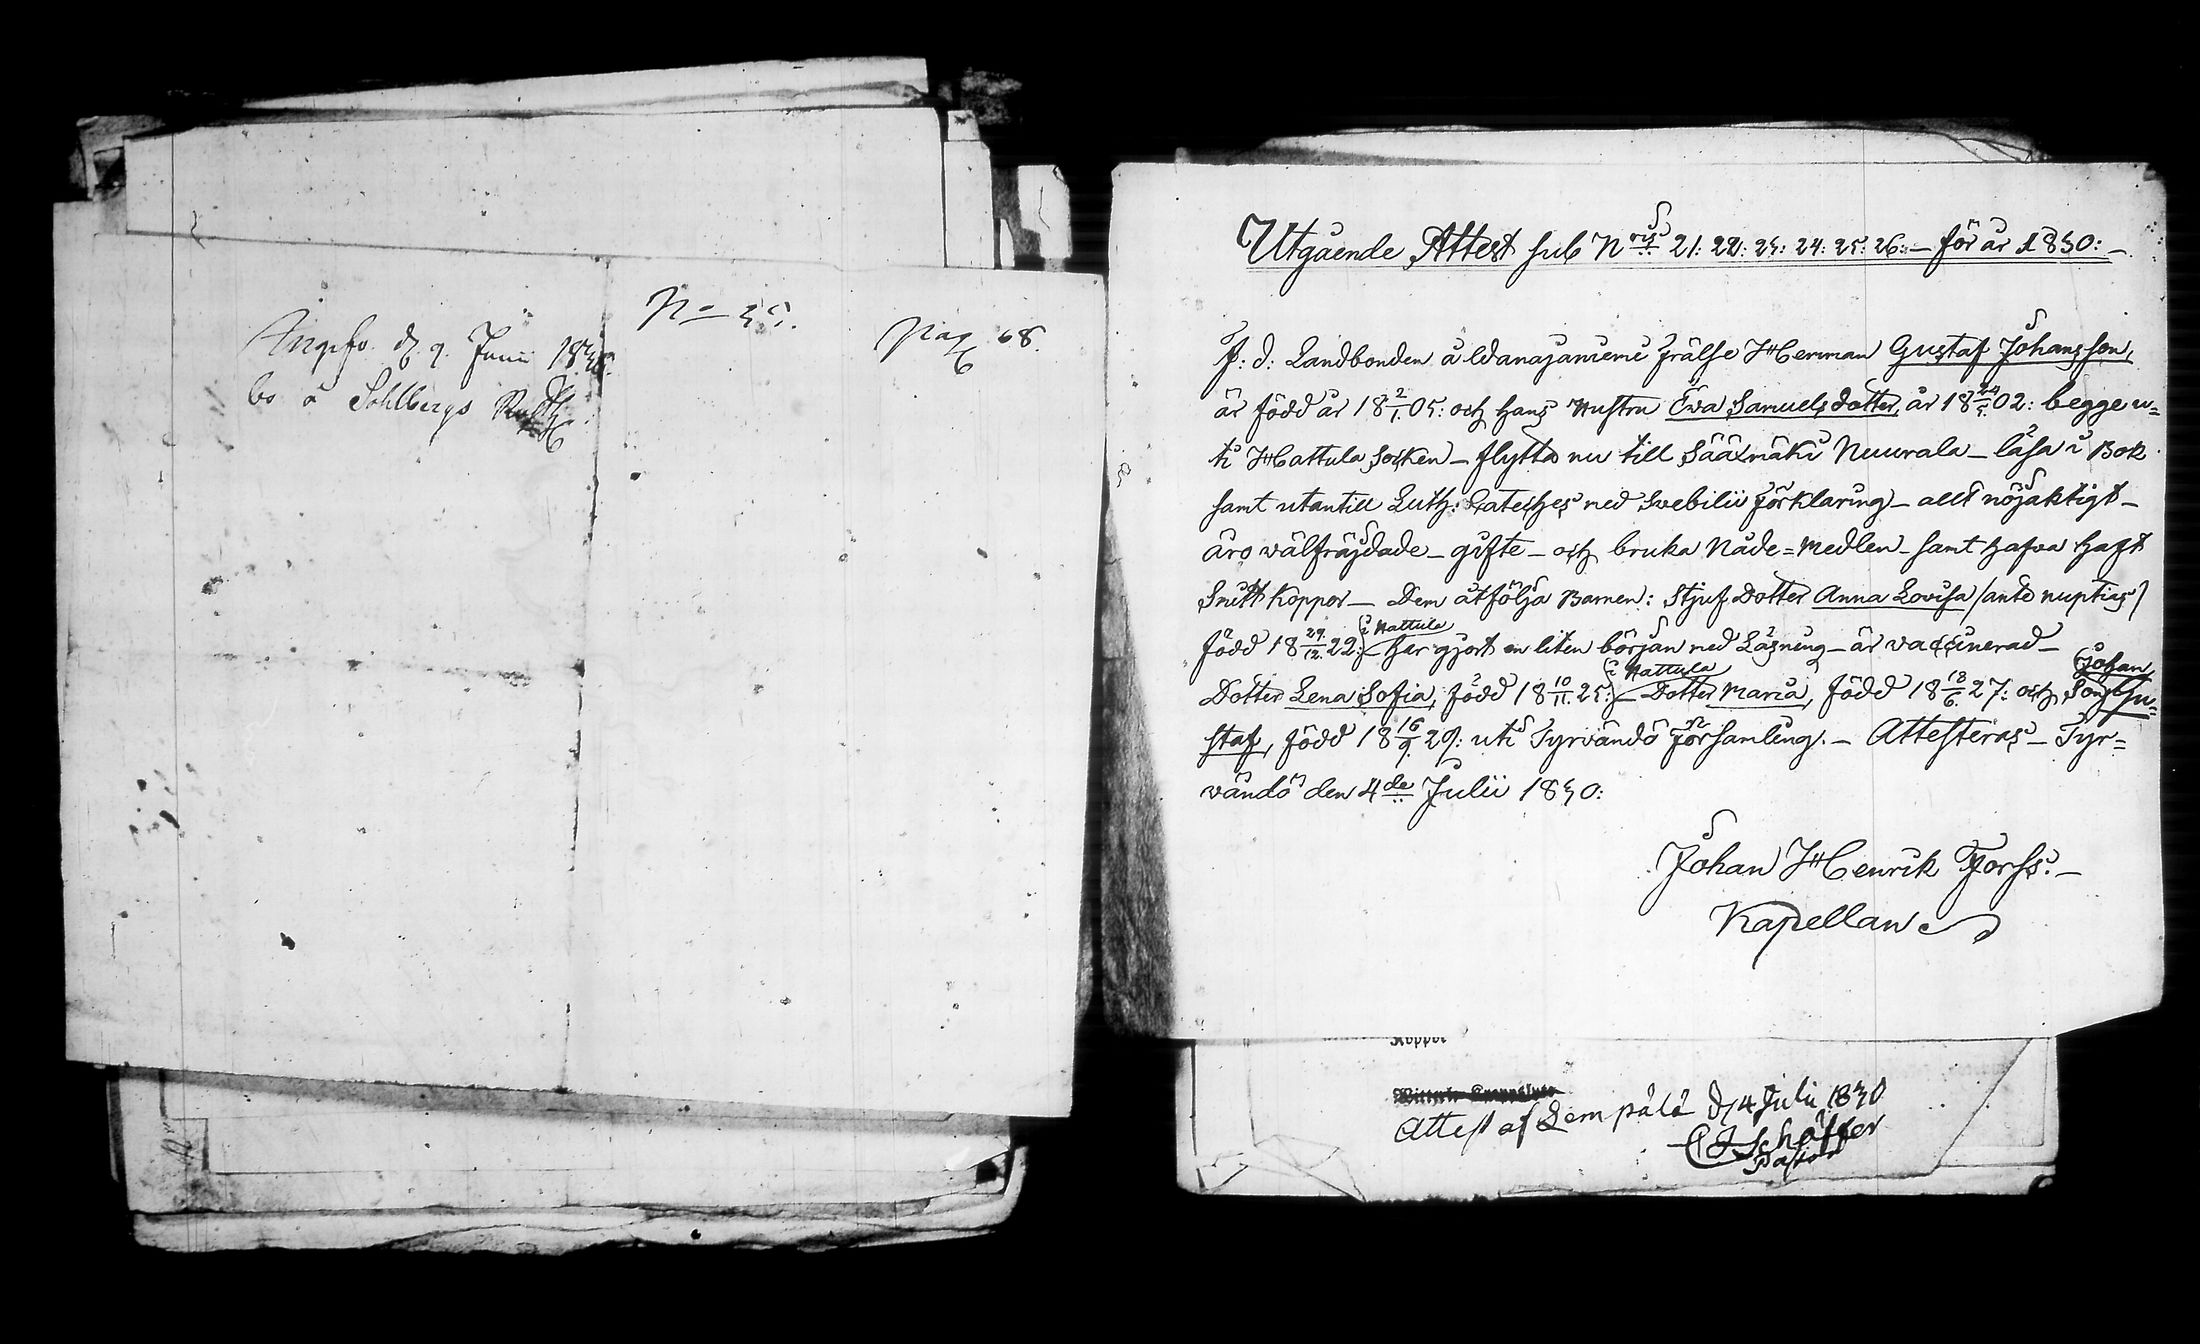 Angifv. d. 9 Junii 1830
bo å Sohlbergs
No 35.
pag 68.
Utgående Attest sub Nris 21: 22: 23: 24: 25: 26: – för år 1830: –
F: d: Landbonden å Wanajaniemi Frälse Herman Gustaf Johansson,
är född år 18 2/1 05: och hans Hustru Ewa Samuels dotter, år 18 24/5 02: begge u=
ti Hattula Socken – flytta nu till Sääxmäki Nuurala – läsa i Bok
samt utantill Luth: Cateches med Swebilii Förklaring – allt nöjaktigt –
äro wälfräjdade – gifte – och bruka Nåde=Medlen – samt hafva haft
Smitt Koppor – Dem åtfölja Barnen: Stjuf Dotter Anna Lovisa /ante nuptias/
född 18 29/12 22: i Hattula har gjort en liten början med Läsning – är vaccinerad –
Dotter Lena Sofia, född 18 10/11 25: i Hattula – Dotter Maria, född 18 13/6 27: och Son Johan Gu=
staf, född 18 16/9 29: uti Tyrvändö Församling. – Attesteras – Tyr=
vändö den 4de Julii 1830:
Johan Henrik Forss: –
Kapellan
Koppor
Attest af Lempälä d. 4 Julii 1830
C J Schäffer
Pastor